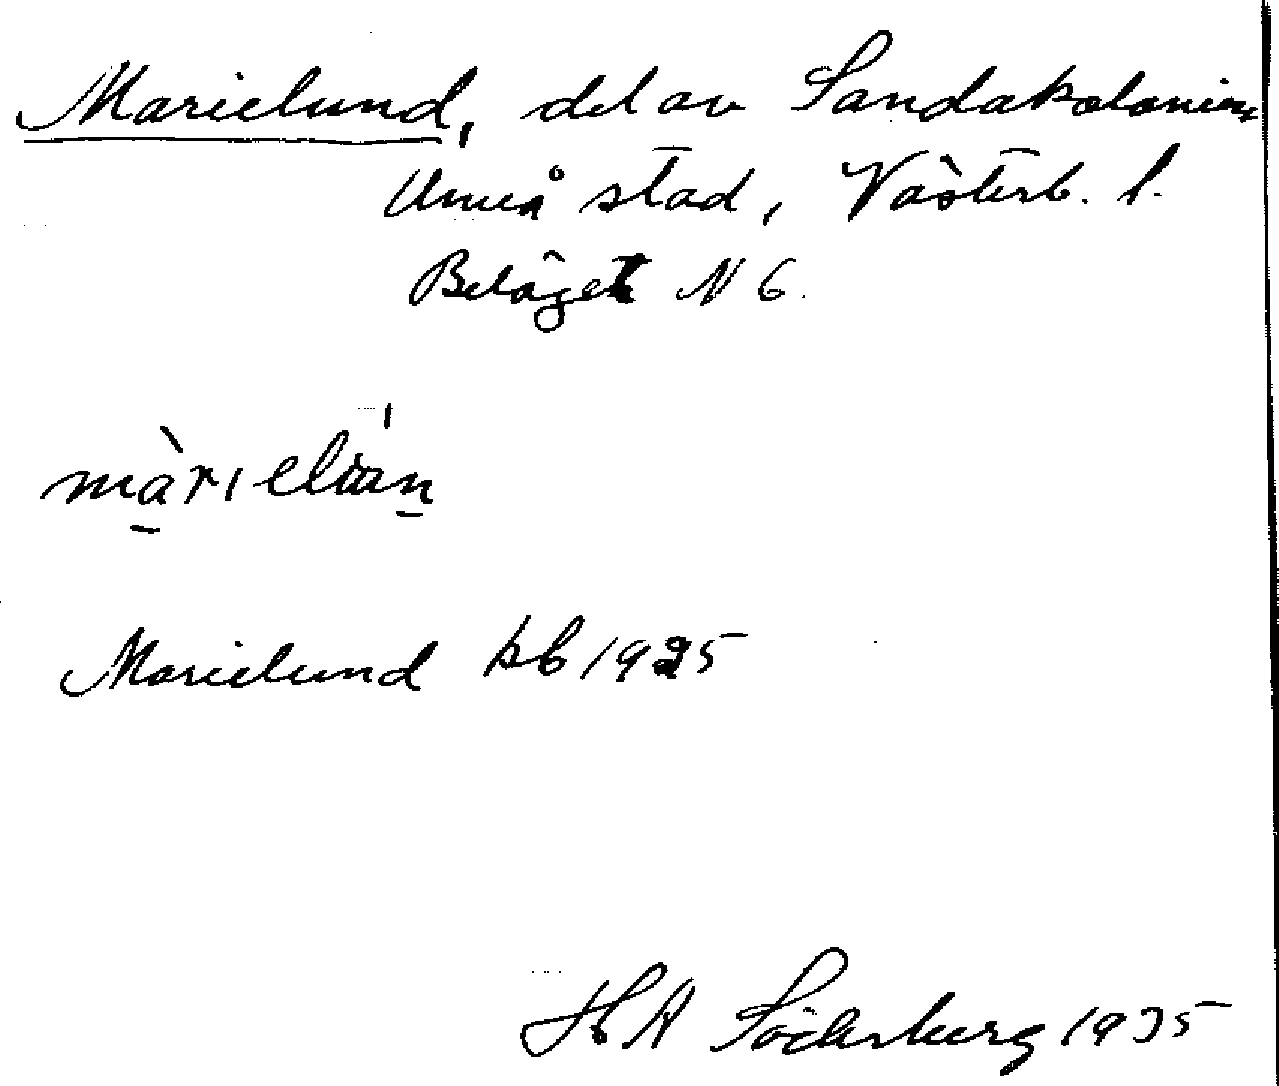 Marielund, del av Sandakolonien
Umeå stad, Västerb. l.
Beläget N 6.
Marielund kb 1925
H A Söderberg 1935